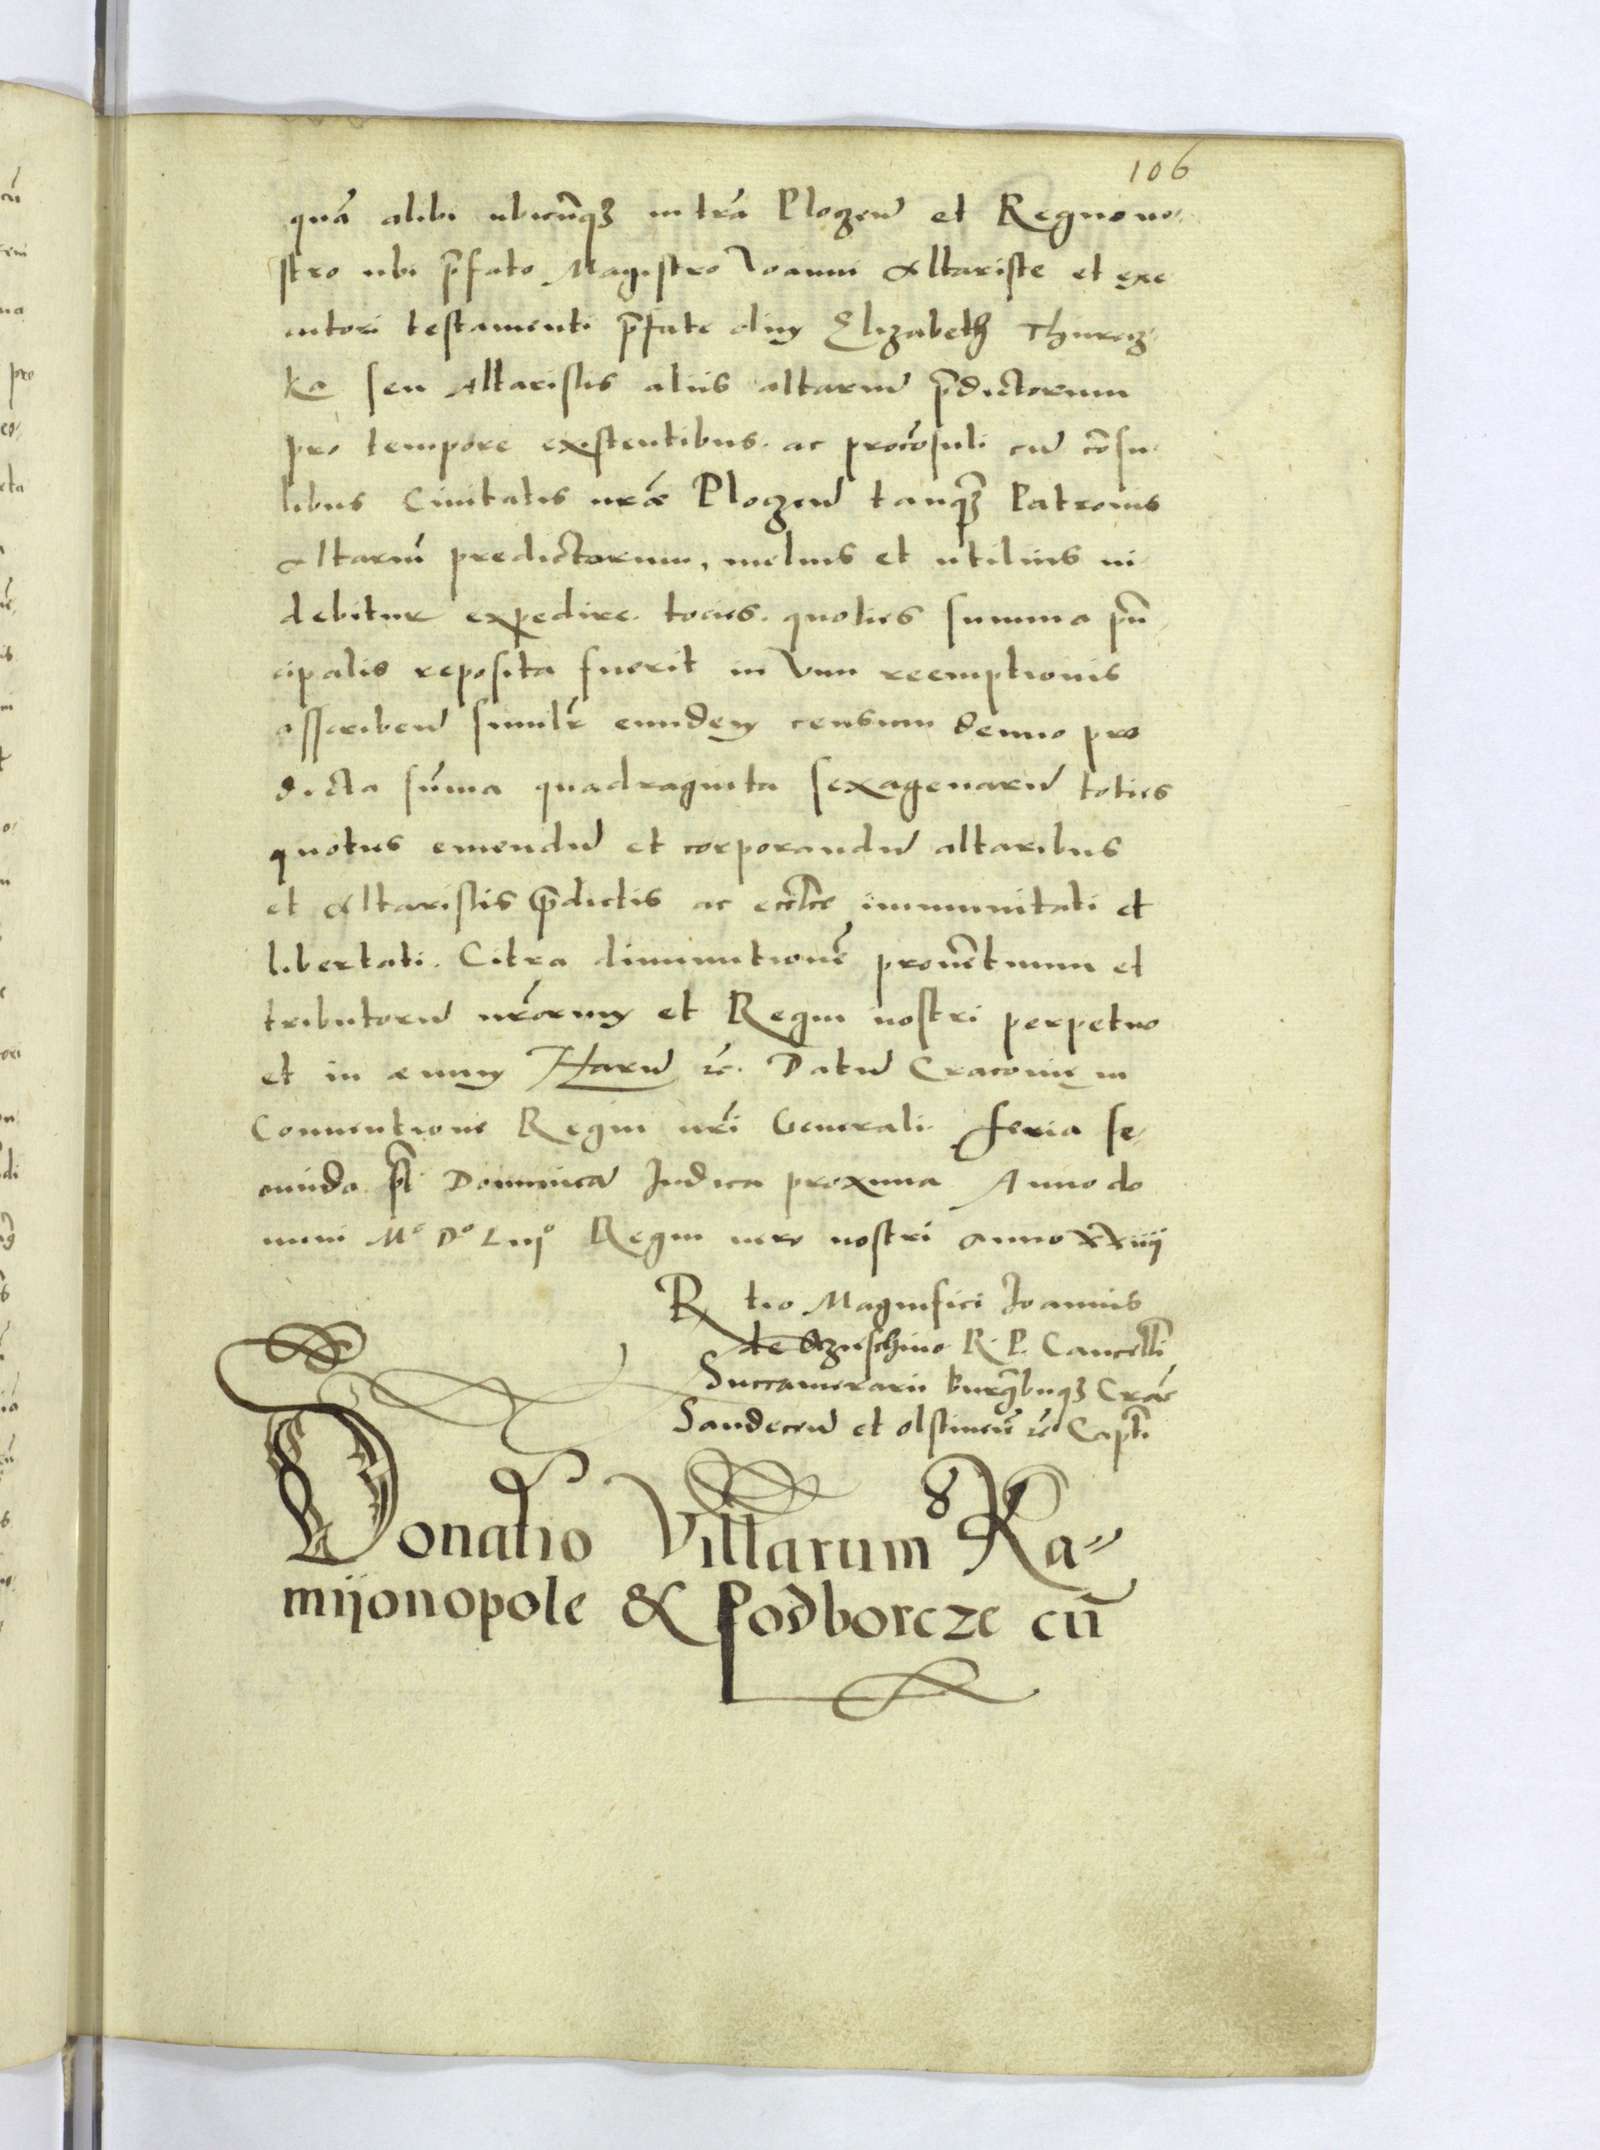 106
quā alibi ubicūqꝫ in trā Plogen̄ et Regno no-
stro ubi p̄fato Magistro Ioanni Altariste et exe
cutori testamenti p̄fate olim Elizabeth Thurcz-
ka seu Altaristis aliis altariū p̄dictorum
pro tempore existentibus. ac procōsuli cū cōsu-
libus Ciuitatis nrāe Plogen̄ tanqꝫ Patronis
Altariū predictorum, melius et utilius ui-
debitur expedire. tocies. quoties summa prī-
cipalis reposita fuerit in vim reemptionis
asscriben̄ similr̄ eundem censum denuo pro
dicta sūma quadraginta sexagenarū toties
quoties emendū et corporandū altaribus
et Altaristis p̄dictis ac ecclīe immunitati et
libertati. Citra diminutionē prouētuum et
tributorū nrōrum et Regni nostri perpetuo
et in æuum Harū ꝛc. Datū Cracouię in
Conuentione Regni nrī Generali. feria se-
cunda pt̄ Dominicā Iudica proxima Anno do
mini Mº Dº Liijº Regni uero nostri anno XXiiij
R tio Magnifici Ioannis
de Oczieschino R. P. Cancellī
Succamerarii burgrābiiqꝫ Crac̄
Sandecen̄ et olstinen̄ ꝛc Captī
Donatio Villarum Ka-
mijonopole & Podborcze cū